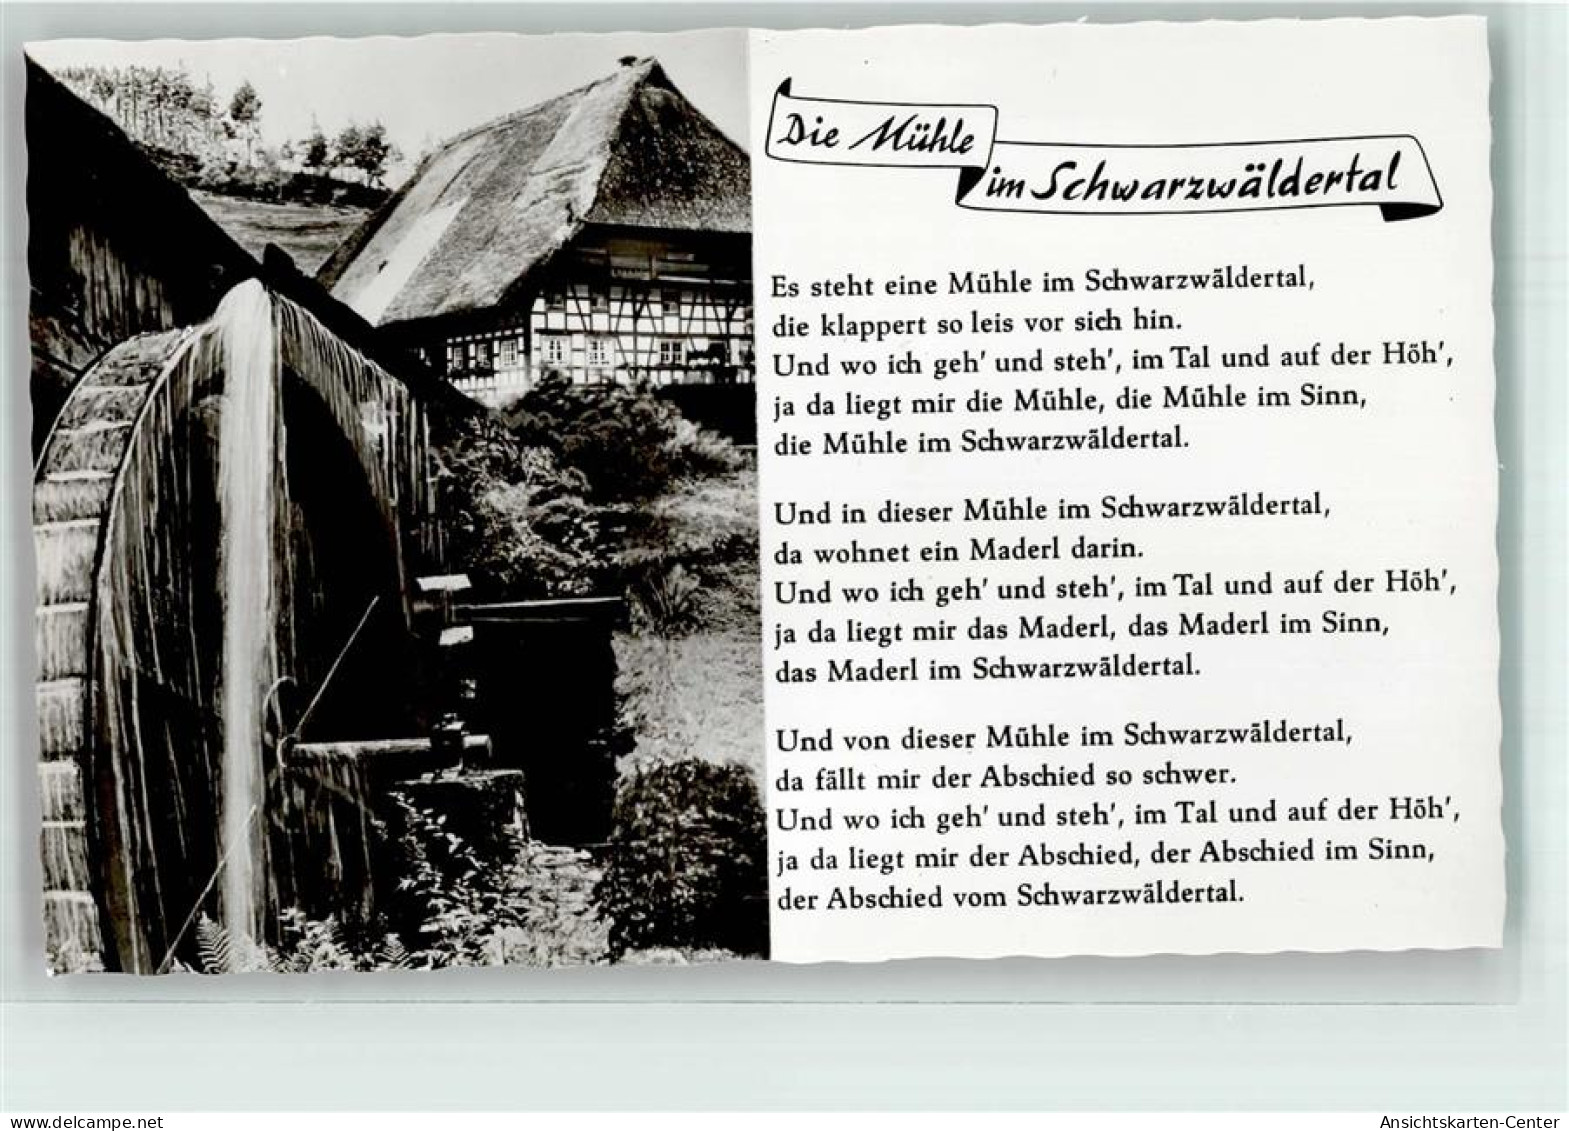 Die Mühle
im Schwarzwäldertal
Es steht eine Mühle im Schwarzwäldertal,
die klappert so leis vor sich hin.
Und wo ich geh' und steh', im Tal und auf der Höh',
ja da liegt mir die Mühle, die Mühle im Sinn,
die Mühle im Schwarzwäldertal.
Und in dieser Mühle im Schwarzwäldertal,
da wohnet ein Maderl darin.
Und wo ich geh' und steh', im Tal und auf der Höh',
ja da liegt mir das Maderl, das Maderl im Sinn,
das Maderl im Schwarzwäldertal.
Und von dieser Mühle im Schwarzwäldertal,
da fällt mir der Abschied so schwer.
Und wo ich geh' und steh', im Tal und auf der Höh',
ja da liegt mir der Abschied, der Abschied im Sinn,
der Abschied vom Schwarzwäldertal.
delcampe.net
Ansichtskarten-Center